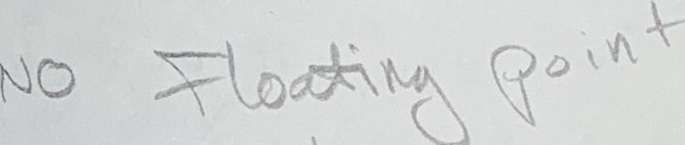 NO Floating point